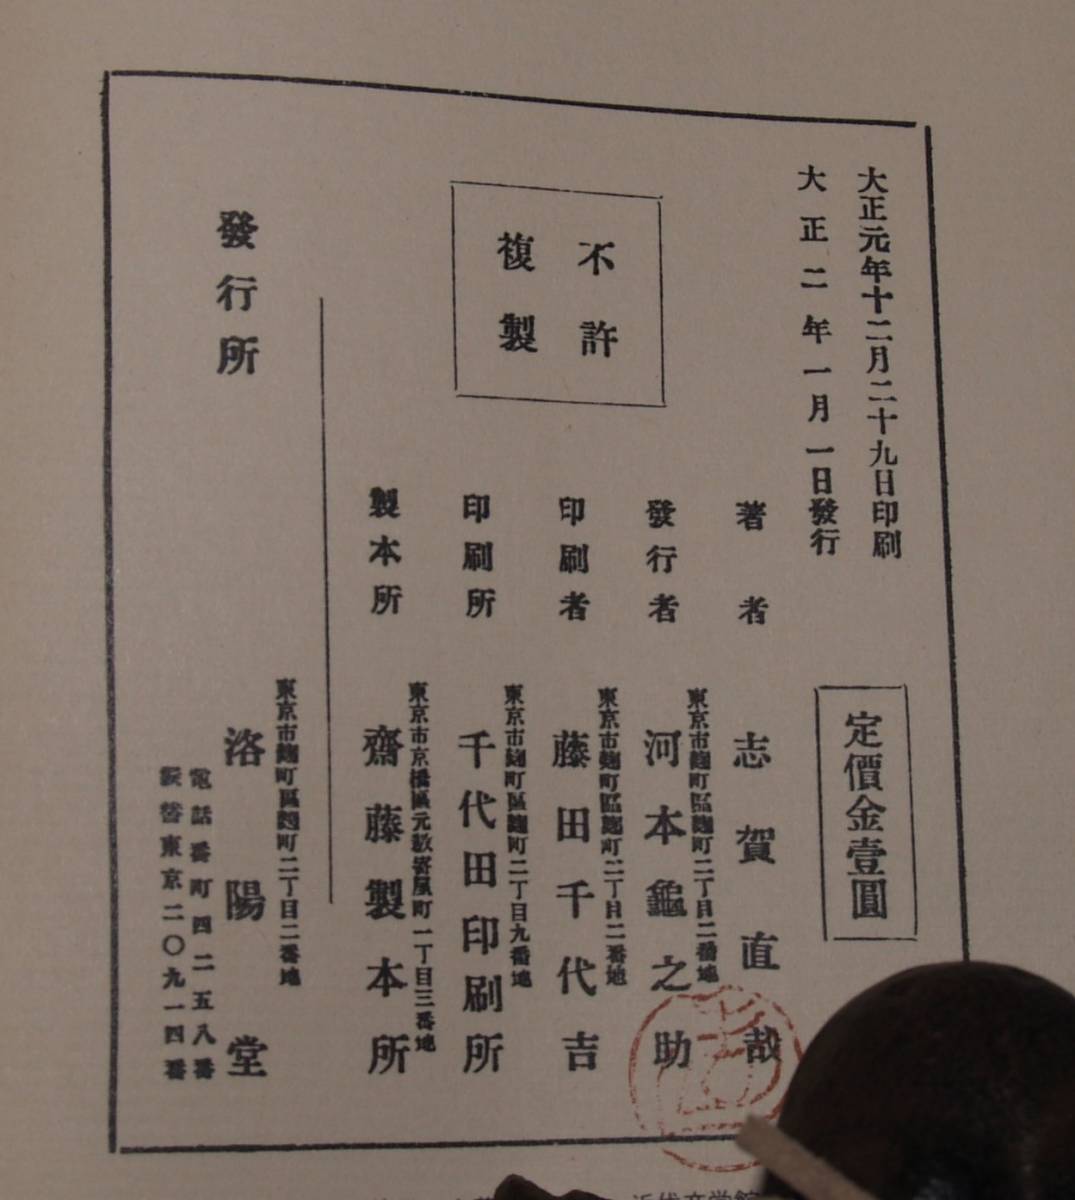 大正元年十二月二十九日印刷
大正二年一月一日發行
定價金壹圓
不許
複製
著者
志賀直哉
發行者
東京市麹町區麹町二丁目二番地
河本龜之助
印刷者
東京市麹町區麹町二丁目二番地
藤田千代吉
印刷所
東京市麹町區麹町二丁目九番地
千代田印刷所
製本所
東京市京橋區元數寄屋町一丁目三番地
齋藤製本所
發行所
東京市麹町區麹町二丁目二番地
洛陽堂
電話番町四二五八番
振替東京二〇九一四番
近代文学館